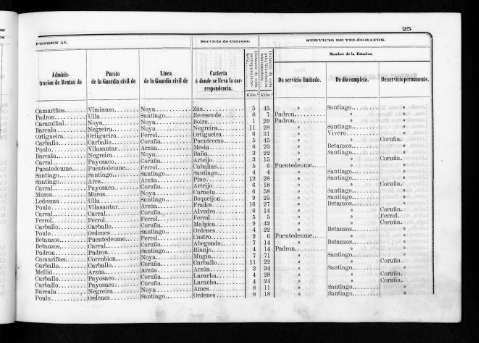 25
PERTENECE AL
Servicio de Correos.
SERVICIO DE TELÉGRAFOS.
Nombre de la Estación.
Administración de Rentas de
Puesto de la Guardia civil de
Línea de la Guardia civil de
Cartería á donde se lleva la correspondencia.
De servicio limitado.
De día completo.
De servicio permanente.
Camariñas Vimianzo Noya Zas 5 45 Santiago
Padron Vila Santiago 6 7 Padron
Caramiñal Noya Noya Boiro 1 29 Padron
Barcala Negreira Noya Negreira 11 28 Santiago
Ortigueira Ortigueira Ferrol Ortigueira 6 31 Vivero
Carballo Carballo Coruña 5 45 Coruña
Poulo Vilasantar Arzúa Mesía 6 25 Betanzos
Barcala Negreira Noya Baña 3 22 Santiago
Carral Payosaco Coruña Arteijo 3 15 Coruña
Puentedeume Puentedeume Ferrol Cabañas 5 6 Puentedeume
Santiago Santiago Santiago Santiago 4 4 Santiago
Santiago Arca Arzúa Pino 12 26 Santiago
Carral Payosaco Coruña Arteijo 6 18 Coruña
Muros Muros Noya Carnota 4 58 Santiago
Ledesma Vila Santiago Boqueijon 9 25 Santiago
Poulo Vilasantar Arzúa Frades 16 27 Betanzos
Carral Carral Coruña 6 14 Coruña
Ferrol Ferrol Ferrol Ferrol 5 5 Ferrol
Carballo Carballo Coruña Malpica 9 43 Coruña
Poulo Ordenes Santiago Ordenes 4 22 Betanzos
Betanzos Puentedeume Ferrol Castro 9 6 Puentedeume
Betanzos Carral Coruña Abegondo 7 14 Betanzos
Padron Padron Santiago Rianjo 4 14 Padron
Camariñas Corcubion Noya Mugía 7 71 Santiago
Carballo Carballo Coruña Carballo 11 22 Coruña
Mellid Arzúa Arzúa Arzúa 3 34 Santiago
Carballo Payosaco Coruña Laracha 4 28 Coruña
Carballo Payosaco Coruña Laracha 4 24 Coruña
Barcala Negreira Noya Ames 8 11 Santiago
Poulo Ordenes Santiago Ordenes 9 18 Santiago